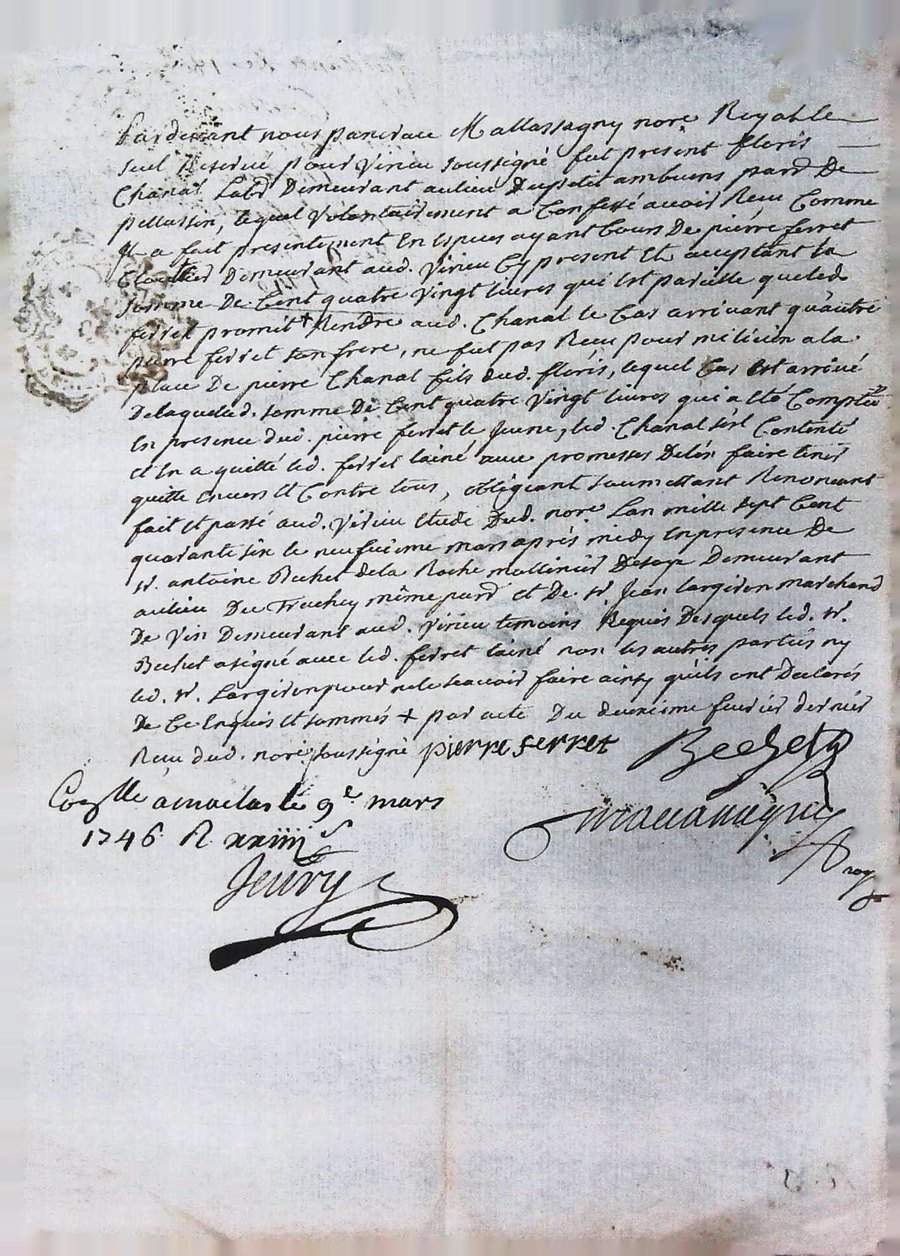 Pardevant nous pancrace Mallassagny nore Royal le
seul Reservé pour Virieu soussigné fut present floris
Chanal Labr Demeurant au lieu du petit ambuens parr De
pellassin, lequel volontairement a Confessé avoir Receu Comme
Il a fait presentement En Espices ayant Cours De pierre ferret
Cloutier Demeurant aud. Virieu Cy present Et acceptant la
somme De Cent quatre Vingt livres qui Est pareille que led
ferret promit + Rendre aud. Chanal le Cas arrivant qu'autre
pierre ferret son frere, ne fut pas Receu pour milicien a la
place De pierre Chanal fils dud. floris, lequel Cas Est arrivé
De laquelle d. somme De Cent quatre Vingt livres qui a Eté Comptée
En presence dud. pierre ferret le Jeune, led. Chanal s'est Contenté
et En a quitté led. ferret lainé avec promesses De l'en faire tenir
quitte Envers Et Contre tous, obligeant soumettant Renonceant
fait Et passé aud. Virieu Etude Dud. nore Lan mille sept Cent
quarante six le neufvieme mars après medy En presence De
sr. antoine Bechet de la Roche mollinier Demeurant
au lieu Du Truchey même parr Et De sr Jean Largeron marchand
De Vin Demeurant aud. Virieu temoins Requis Desquels led. sr.
Bechet a signé avec led. ferret lainé non les autres parties ny
led. sr. Largeron pour ne le sçavoir faire ainsy qu'ils ont Declarés
De Ce Enquis Et sommés + par acte Du deuxieme fevrier dernier
Receu dud. nore soussigné pierre ferret Bechet
Conllé a maclas le 9e mars
1746 R xxiiii s
Jeury